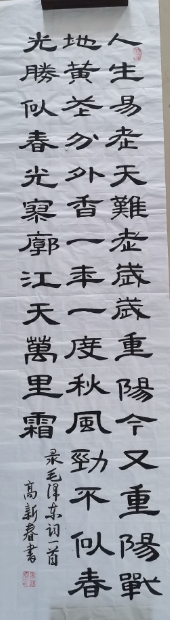 人生易老天難老歲歲重陽今又重陽戰
地黃花分外香一年一度秋風勁不似春
光勝似春光寥廓江天萬里霜
录毛泽东词一首
高新春書